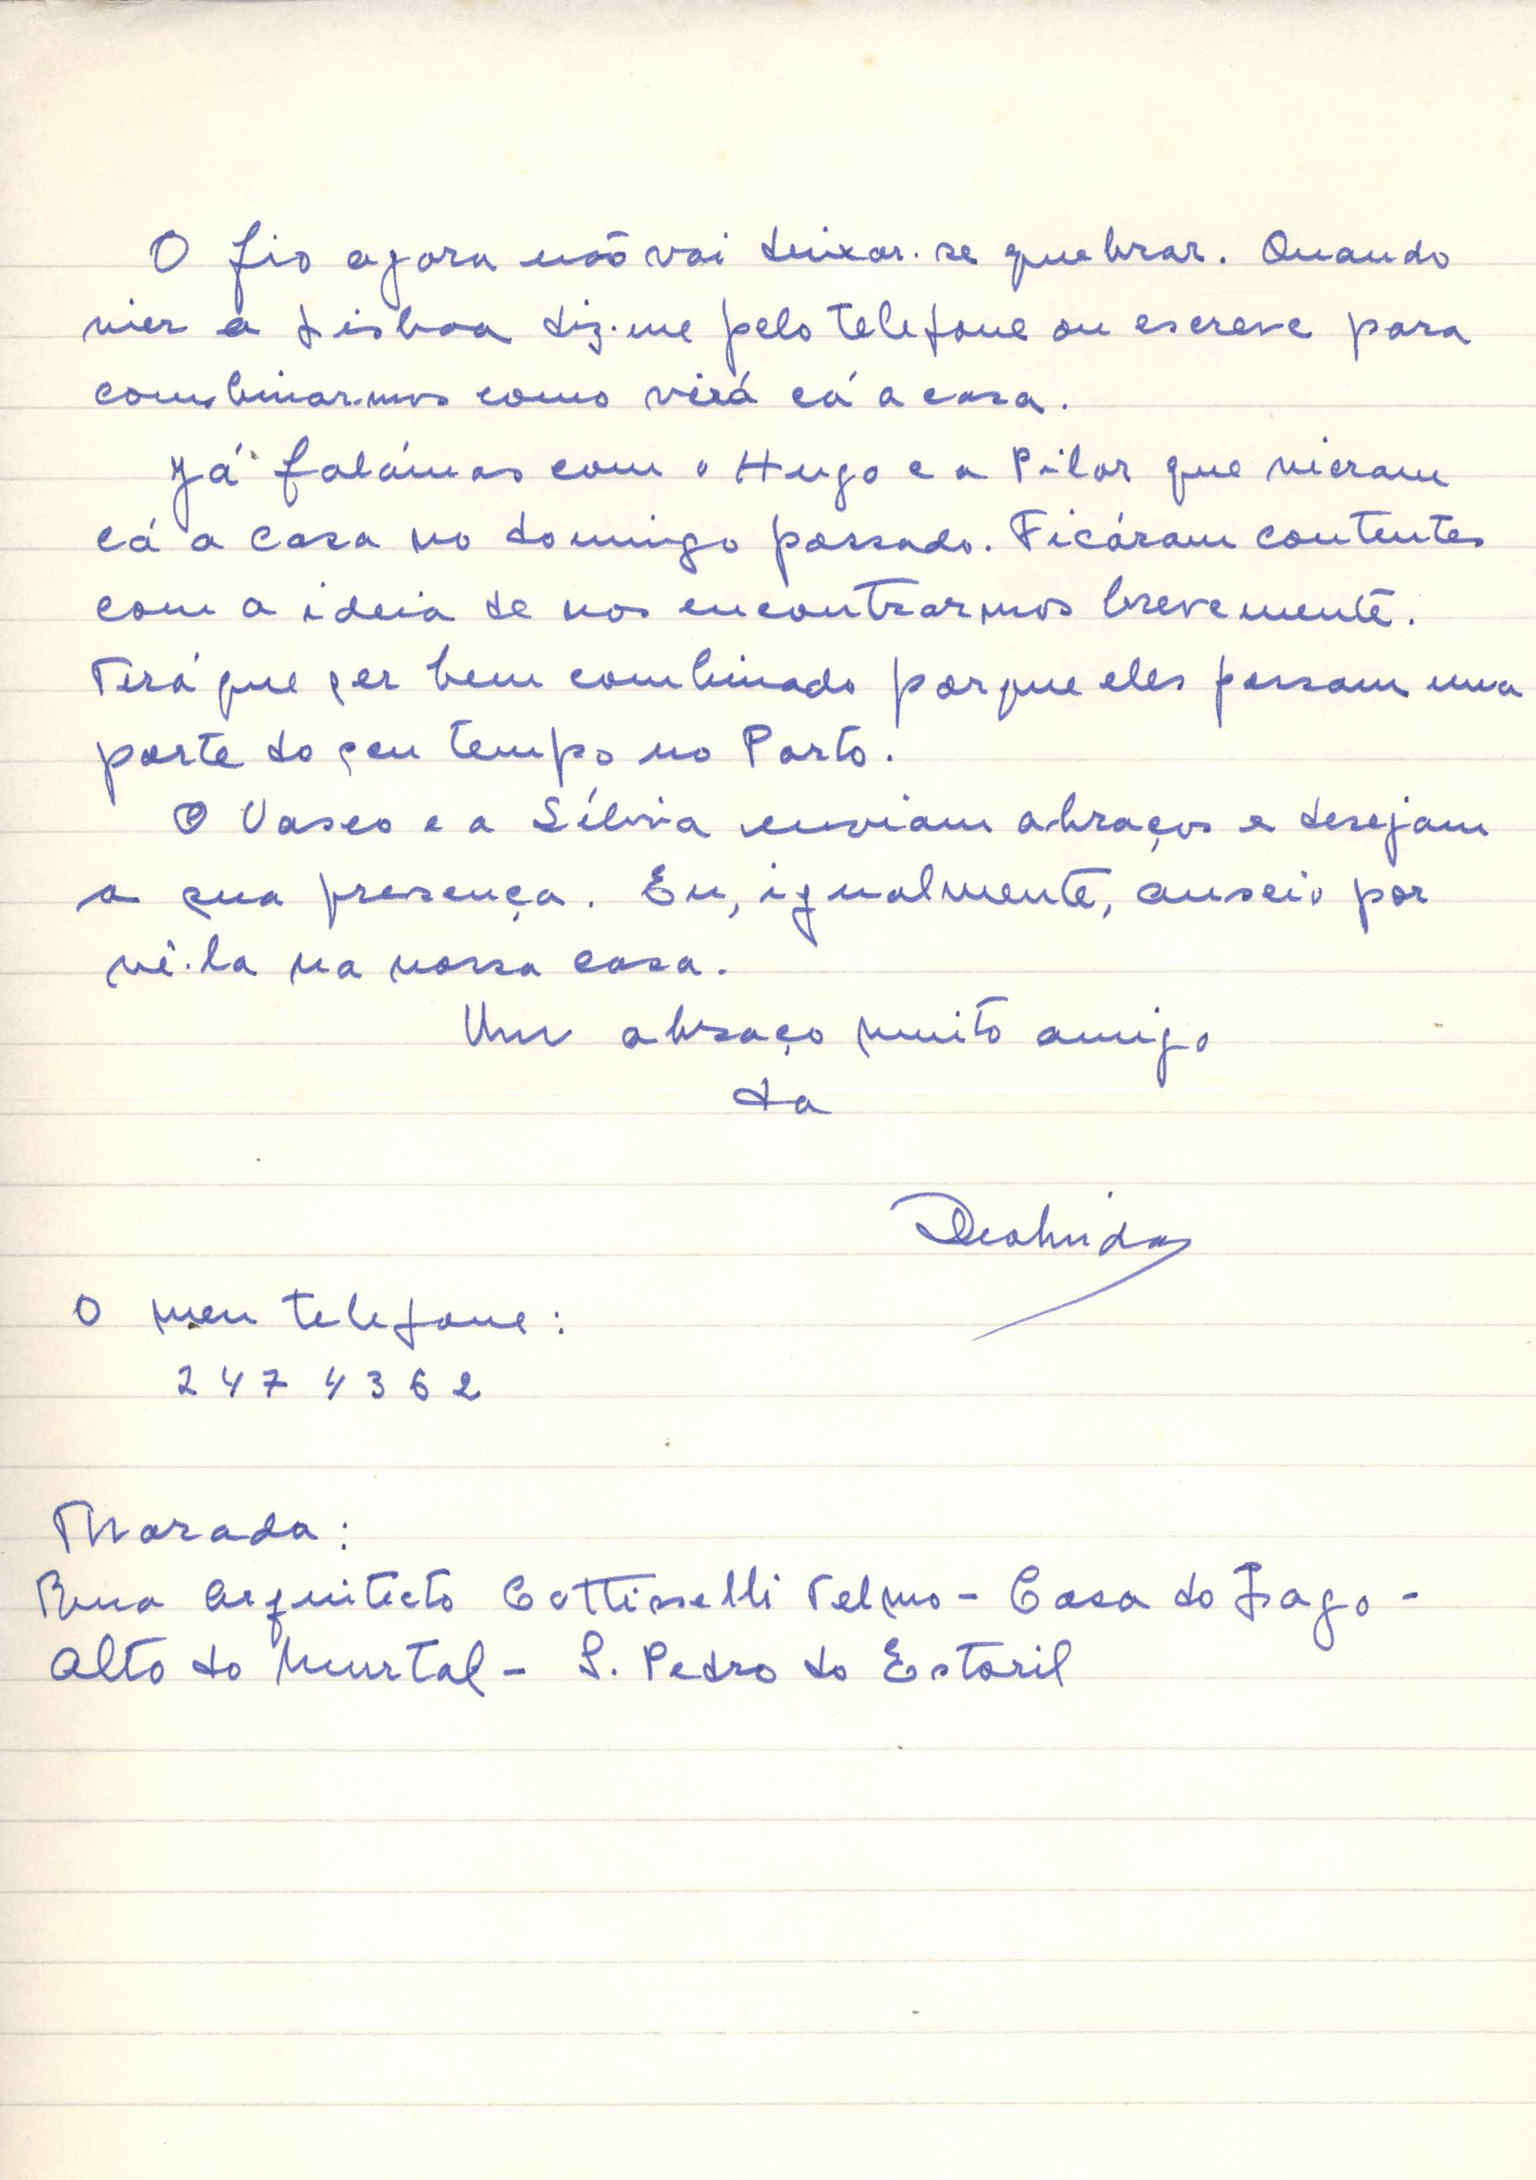 O fio agora não vai deixar-se quebrar. Quando
vier a Lisboa diz-me pelo telefone ou escreve para
combinar-mos como virá cá a casa.
Já falámos com o Hugo e a Pilar que vieram
cá a casa no domingo passado. Ficáram contentes
com a ideia de nos encontrarmos brevemente.
Terá que ser bem combinado porque eles passam uma
parte do seu tempo no Porto.
O Vasco e a Sílvia enviam abraços e desejam
a sua presença. Eu, igualmente, anseio por
vê-la na nossa casa.
Um abraço muito amigo
da
Deolinda
O meu telefone:
247 4362
Morada:
Rua Arquitecto Cottinelli Telmo - Casa do Lago -
Alto do Murtal - S. Pedro do Estoril